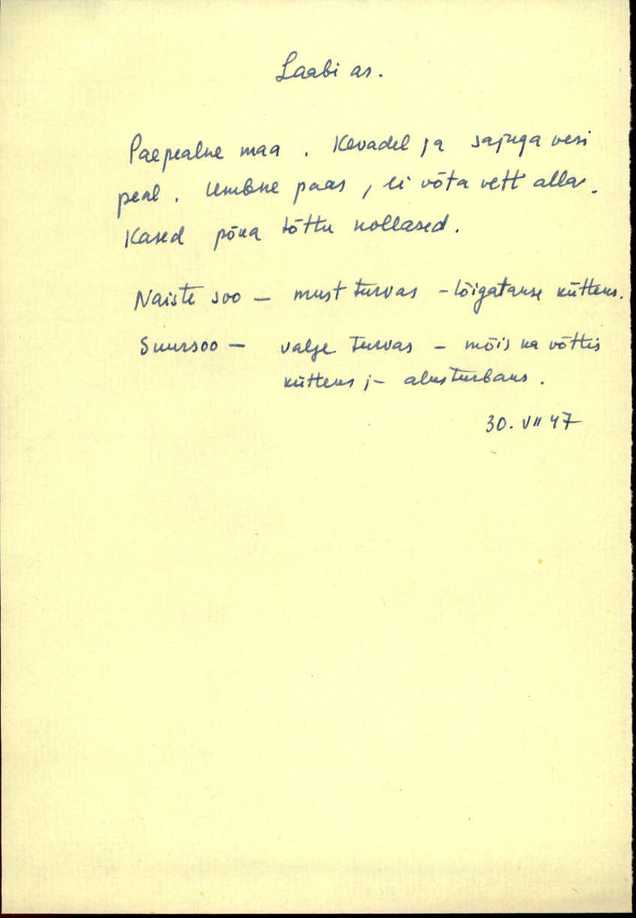 Laabi as.
Paepealne maa. Kevadel ja sajuga vesi
peal. Umbne paas, ei võta vett alla.
Kased põua tõttu kollased.
Naiste soo – must turvas – lõigatakse kütteks.
Suursoo – valge turvas – mõis ka võttis
kütteks j– alusturbaks.
30. VII 47